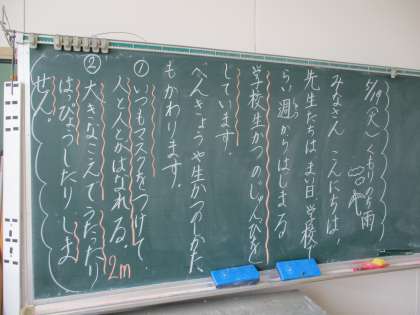 5/19(火)くもりのち雨
みなさん、こんにちは!
先生たちはまい日、学校で
らい週からはじまる
学校生かつのじゅんびを
しています。
べんきょうや生かつのしかた
もかわります。
①いつもマスクをつけて
人と人とがはなれる。2m
②大きなこえでうたったり
はっぴょうしたりしま
せん。